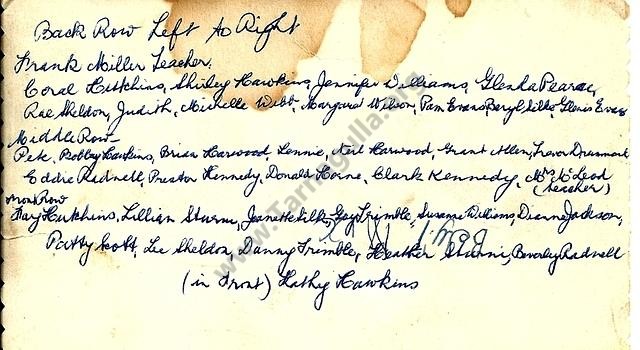 Back Row Left to Right
Frank Miller Teacher.
Coral Hutchins, Shirley Hawkins, Jennifer Williams, Glenda Pearce,
Rae Sheldon, Judith, Michelle Webb, Margaret Wilson, Pam Evans, Beryl Silke, Glenis Evans
Middle Row
Pete, Robbey Hawkins, Brian Harwood, Lennie, Neil Harwood, Grant Allen, Trevor Drummond
Eddie Radnell, Preston Kennedy, Donald Horne, Clark Kennedy, Mrs McLeod
(teacher)
Front Row
Fay Hutchins, Lillian Sturni, Jeanette Silke, Gay Trimble, Susanne Williams, Dianne Jackson,
Patty Scott, Lee Sheldon, Danny Trimble, Heather Sturni, Beverley Radnell
(in Front) Kathy Hawkins
www.Tarnagulla.org